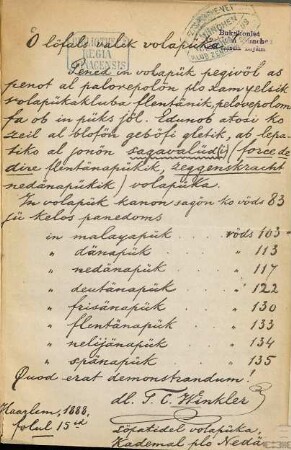 O löfals valik volapüka!
Tened in volapük pegivöl as
penot al palovepolön plo zänyelsik
volapükakluba flentänik, pelovepolom
fa ob in püks jöl. Edunob atosi ko
zeil al blofön geböfi gletik, ab lepa-
tiko al jonön sagavalüd(i) (force de
dire flentänapükik, zeggenskracht
nedänapükik) volapüka.
In volapük kanon sagön ko vöds 83
jü kelos panedoms
in malayapük vöds 103
" dänapük " 113
" nedänapük " 117
" deutänapük " 122
" frisänapük " 130
" flentänapük " 133
" nelijänapük " 134
" spänapük " 135
Quod erat demonstrandum!
Haarlem, 1888, dl. T. C. Winkler
folul 15id
löpatidel volapüka,
Kademal plo Nedä